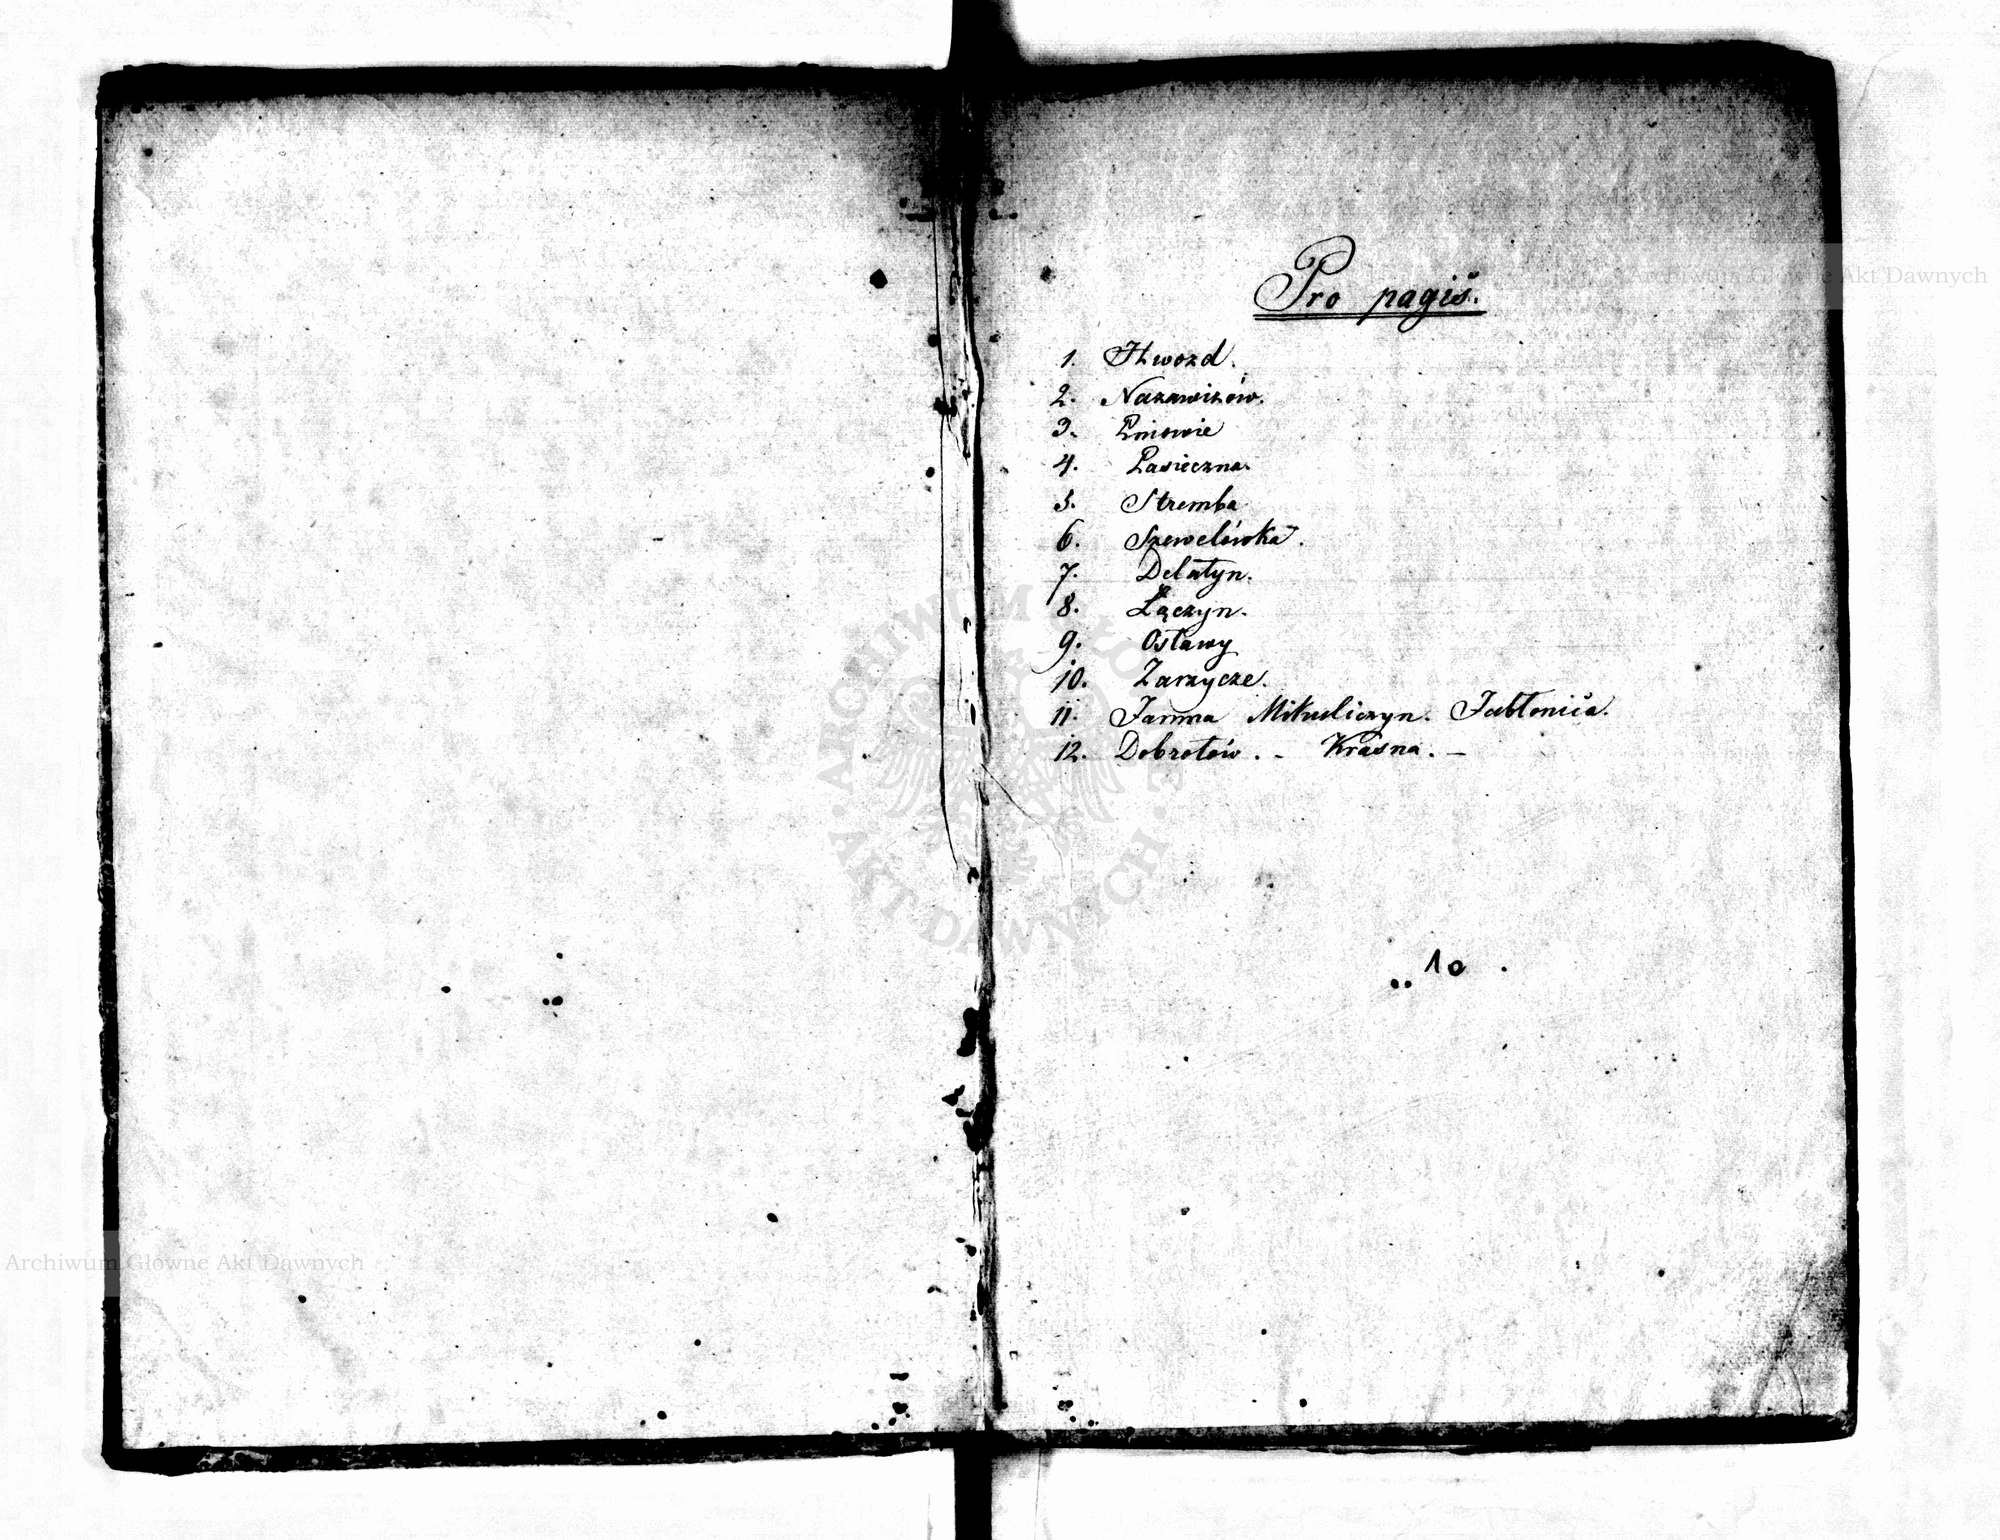 Pro pagis.
1. Hwozd.
2. Nazawizów.
3. Pniowie
4. Pasieczna.
5. Stremba
6. Szewelówka.
7. Delatyn.
8. Łączyn.
9. Osławy
10. Zarzycze.
11. Jamna Mikuliczyn. Jabłonica.
12. Dobrotów. - Krasna. -
10
Archiwum Główne Akt Dawnych
Archiwum Główne Akt Dawnych
ARCHIWUM GŁÓWNE · AKT DAWNYCH ·